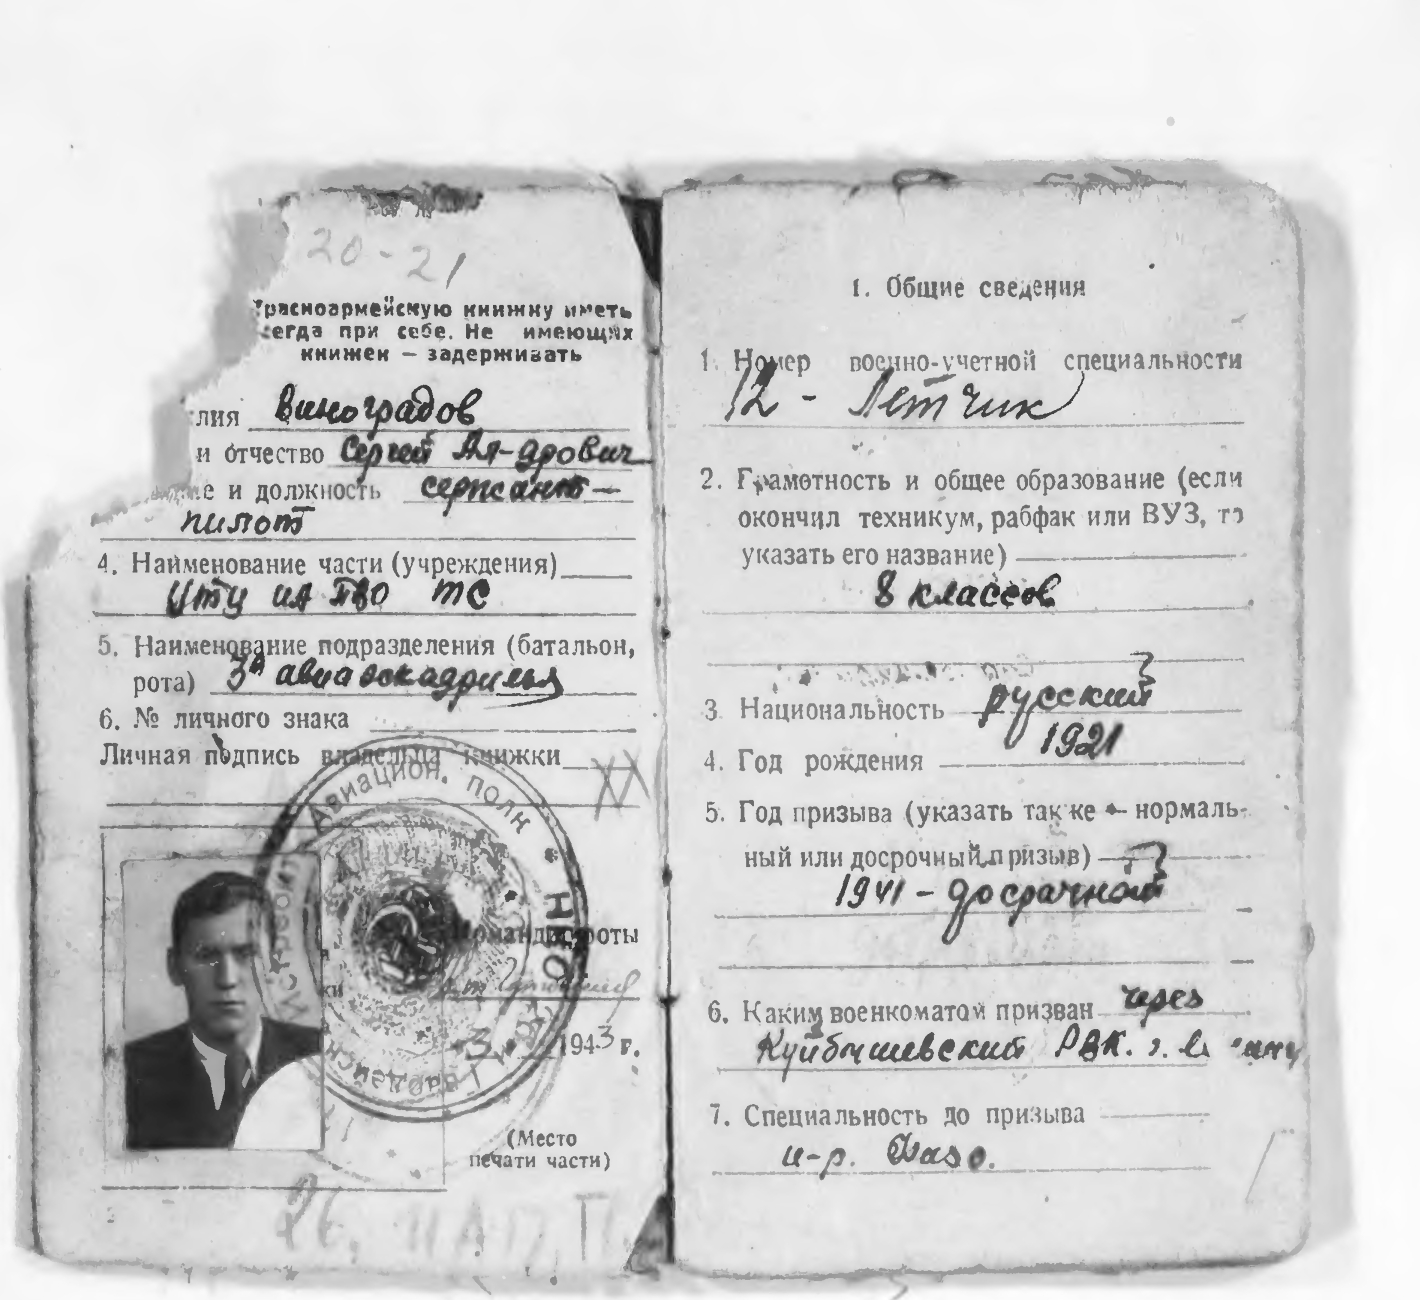 20-21
Красноармейскую книжку иметь
сегда при себе. Не имеющих
книжек — задерживать
лия Виноградов
и отчество Сергей Ал-дрович
ие и должность сержант —
пилот
4. Наименование части (учреждения)
УТЦ ИА ПВО ТС
5. Наименование подразделения (батальон,
рота) 3я авиаэскадрилья
6. № личного знака
Личная подпись владельца книжки
Авиацион. полк * НКО
Командир роты
3 1943 г.
(Место
печати части)
26.
1. Общие сведения
1. Номер военно-учетной специальности
12 - Летчик
2. Грамотность и общее образование (если
окончил техникум, рабфак или ВУЗ, то
указать его название)
8 классов
3 Национальность русский
4. Год рождения 1921
5. Год призыва (указать также — нормаль-
ный или досрочный призыв)
1941 - досрачной
6. Каким военкоматом призван через
Куйбышевский РВК. г.
7. Специальность до призыва